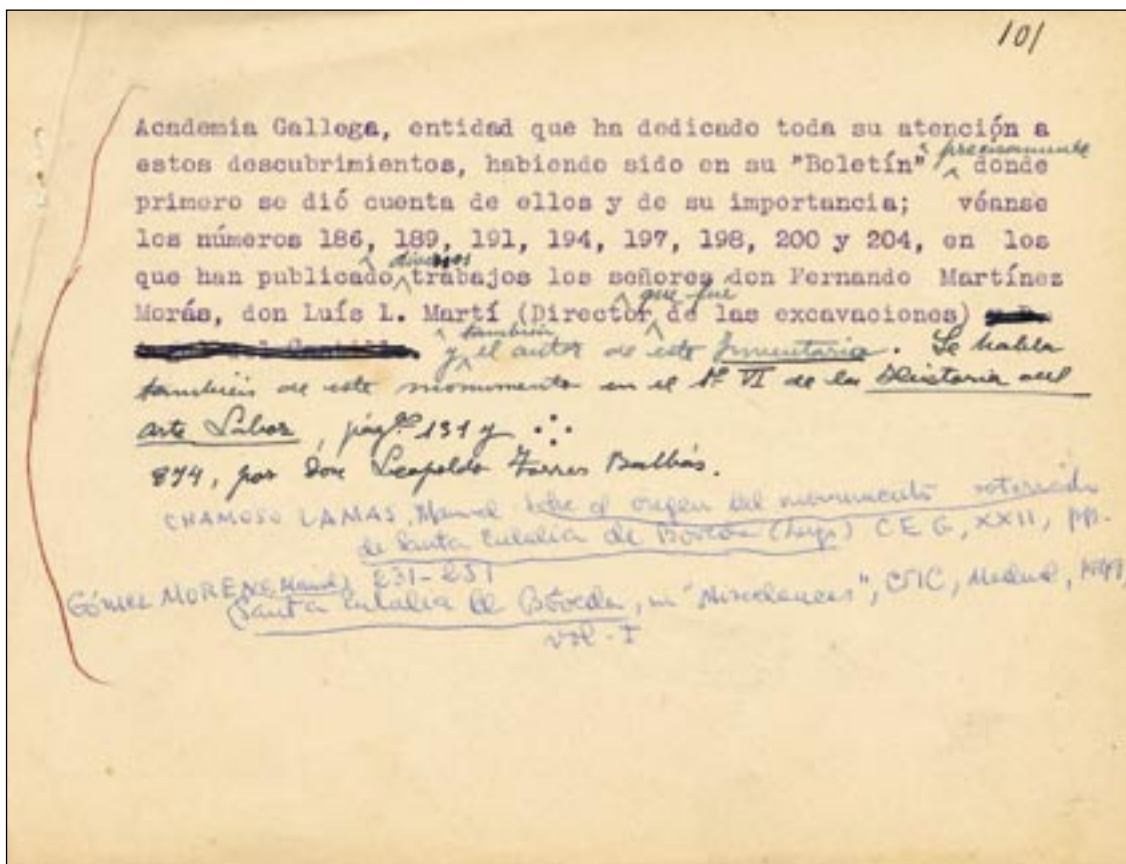 101
Academia Gallega, entidad que ha dedicado toda su atención a
estos descubrimientos, habiendo sido en su "Boletín" precisamente donde
primero se dió cuenta de ellos y de su importancia; véanse
los números 186, 189, 191, 194, 197, 198, 200 y 204, en los
que han publicado diversos trabajos los señores don Fernando Martínez
Morás, don Luís L. Martí (Director que fue de las excavaciones)
y también el autor de este Inventario. Se habla
también de este monumento en el tº VI de la Historia del
arte Labor, págs. 131 y
874, por Don Leopoldo Torres Balbás.
CHAMOSO LAMAS, Manuel Sobre el origen del monumento soterrado
de Santa Eulalia de Bóveda (Lugo) CEG, XXII, pp.
231-251
GÓMEZ MORENO, Manuel, Santa Eulalia de Bóveda, en "Misceláneas", CSIC, Madrid, 1949,
vol. I